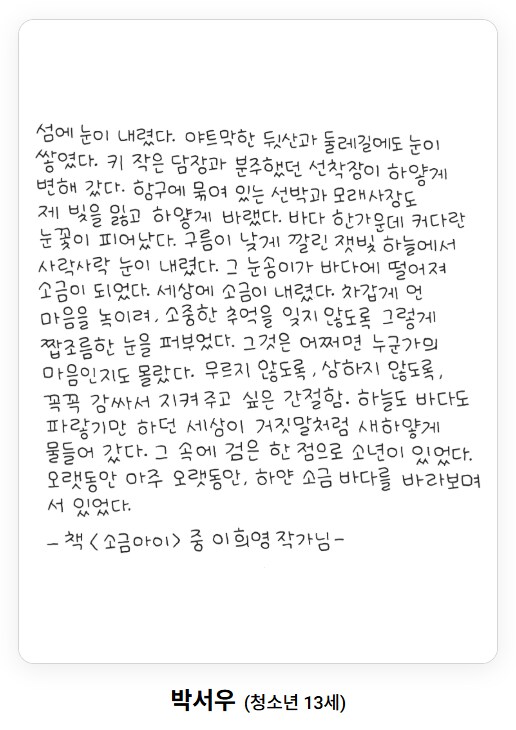 섬에 눈이 내렸다. 야트막한 뒷산과 둘레길에도 눈이
쌓였다. 키 작은 담장과 분주했던 선착장이 하얗게
변해 갔다. 항구에 묶여 있는 선박과 모래사장도
제 빛을 잃고 하얗게 바랬다. 바다 한가운데 커다란
눈꽃이 피어났다. 구름이 낮게 깔린 잿빛 하늘에서
사락사락 눈이 내렸다. 그 눈송이가 바다에 떨어져
소금이 되었다. 세상에 소금이 내렸다. 차갑게 언
마음을 녹이려, 소중한 추억을 잊지 않도록 그렇게
짭조름한 눈을 퍼부었다. 그것은 어쩌면 누군가의
마음인지도 몰랐다. 무르지 않도록, 상하지 않도록,
꼭꼭 감싸서 지켜주고 싶은 간절함. 하늘도 바다도
파랗기만 하던 세상이 거짓말처럼 새하얗게
물들어 갔다. 그 속에 검은 한 점으로 소년이 있었다.
오랫동안 아주 오랫동안, 하얀 소금 바다를 바라보며
서 있었다.
- 책 <소금아이> 중 이희영 작가님 -
박서우 (청소년 13세)